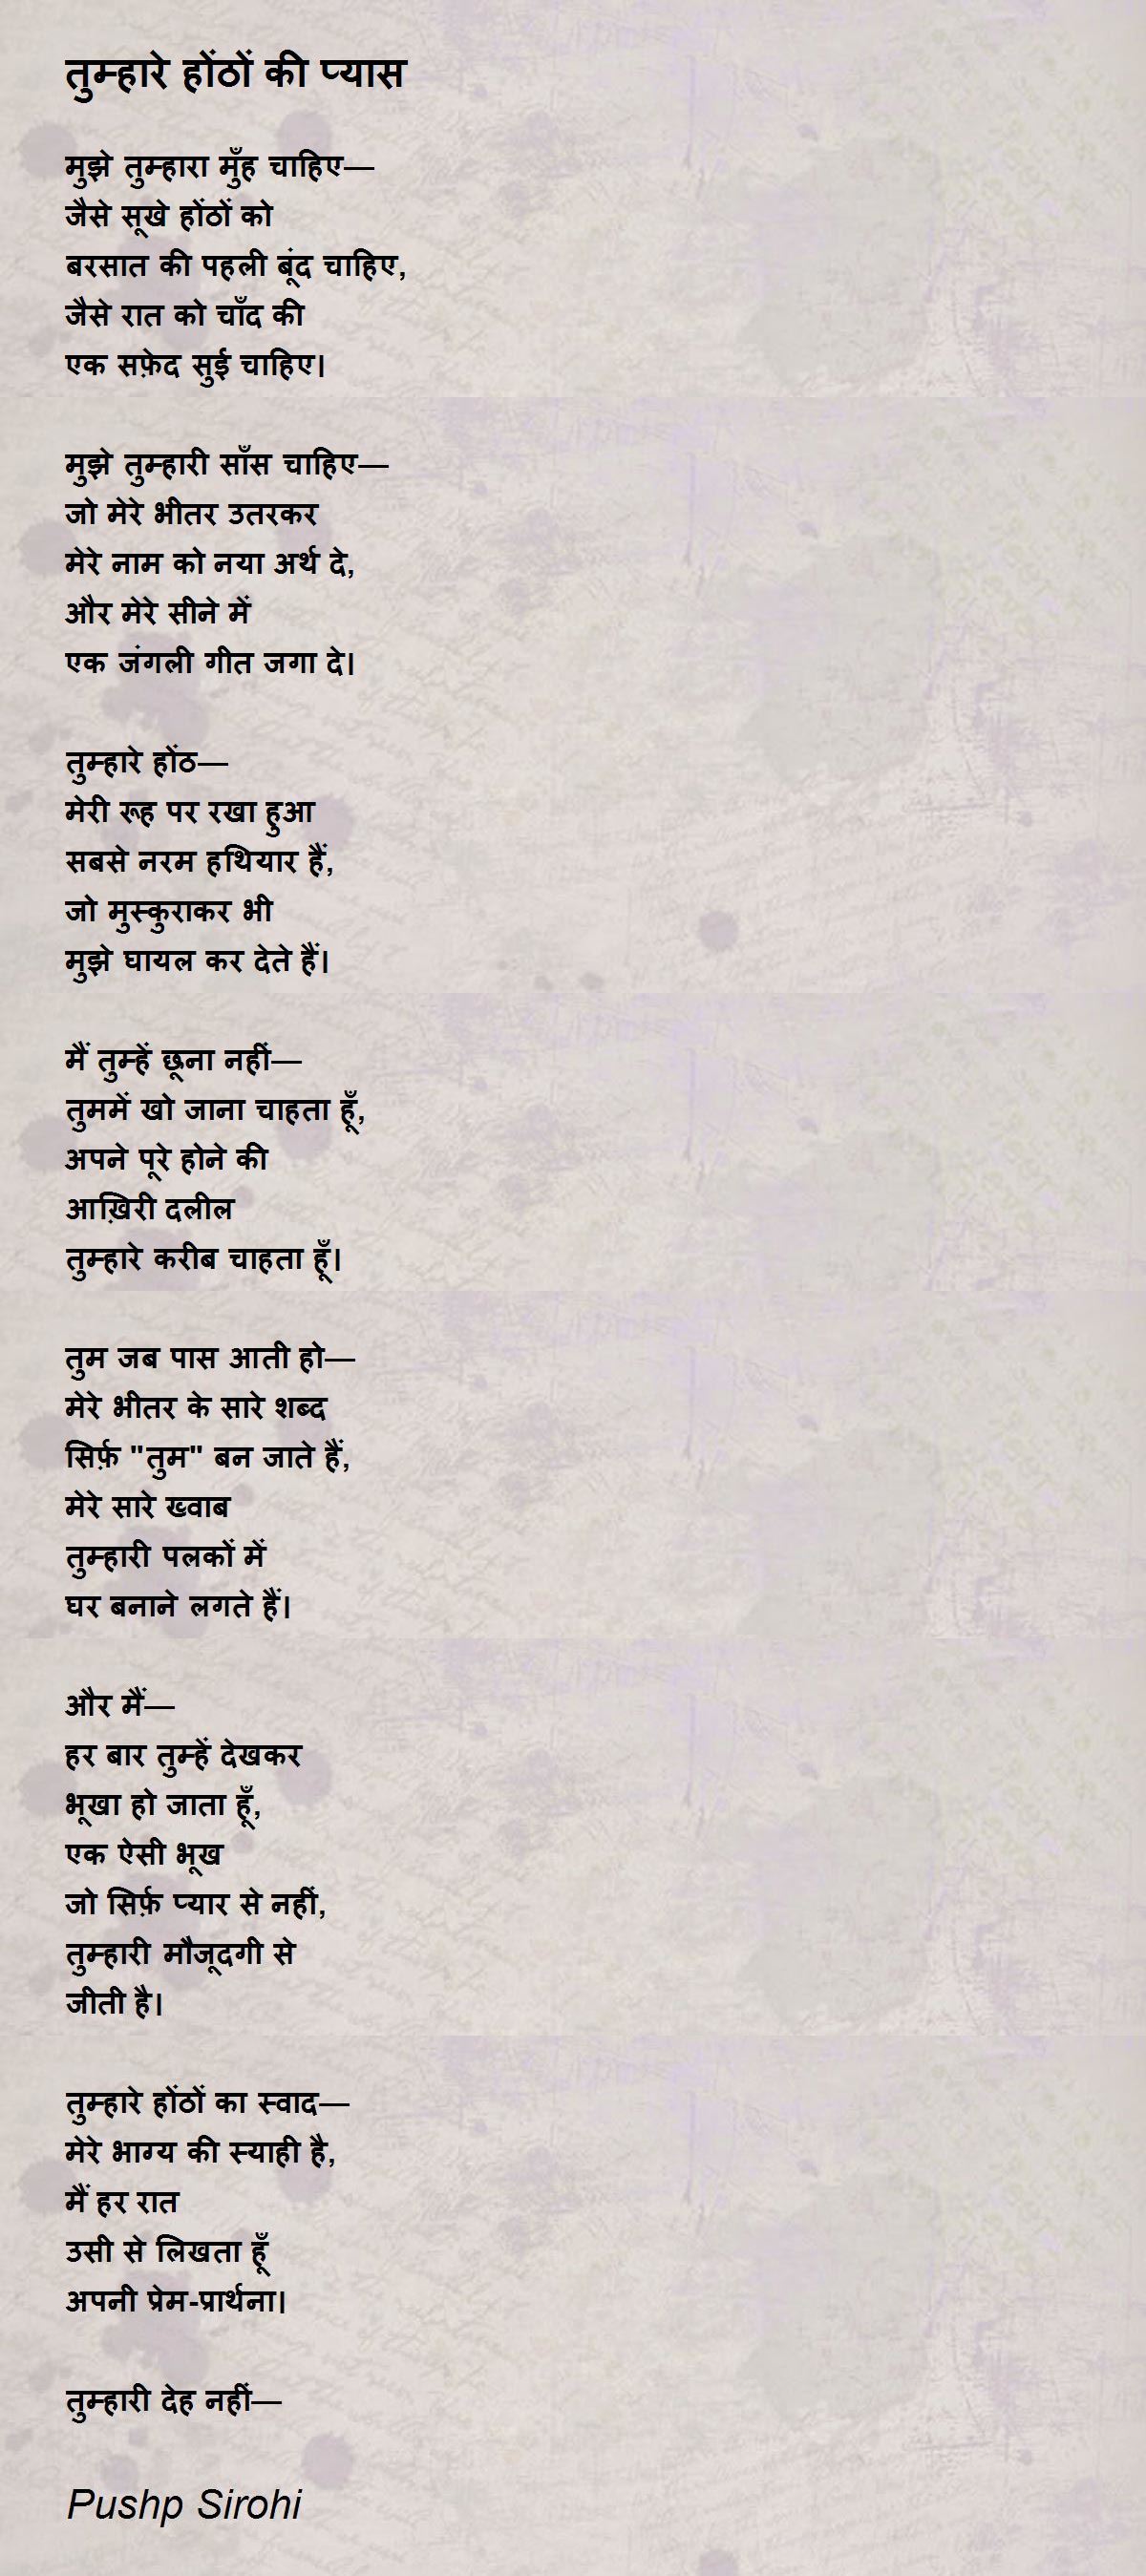 तुम्हारे होंठों की प्यास
मुझे तुम्हारा मुँह चाहिए—
जैसे सूखे होंठों को
बरसात की पहली बूंद चाहिए,
जैसे रात को चाँद की
एक सफ़ेद सुई चाहिए।
मुझे तुम्हारी साँस चाहिए—
जो मेरे भीतर उतरकर
मेरे नाम को नया अर्थ दे,
और मेरे सीने में
एक जंगली गीत जगा दे।
तुम्हारे होंठ—
मेरी रूह पर रखा हुआ
सबसे नरम हथियार हैं,
जो मुस्कुराकर भी
मुझे घायल कर देते हैं।
मैं तुम्हें छूना नहीं—
तुममें खो जाना चाहता हूँ,
अपने पूरे होने की
आख़िरी दलील
तुम्हारे करीब चाहता हूँ।
तुम जब पास आती हो—
मेरे भीतर के सारे शब्द
सिर्फ़ "तुम" बन जाते हैं,
मेरे सारे ख्वाब
तुम्हारी पलकों में
घर बनाने लगते हैं।
और मैं—
हर बार तुम्हें देखकर
भूखा हो जाता हूँ,
एक ऐसी भूख
जो सिर्फ़ प्यार से नहीं,
तुम्हारी मौजूदगी से
जीती है।
तुम्हारे होंठों का स्वाद—
मेरे भाग्य की स्याही है,
मैं हर रात
उसी से लिखता हूँ
अपनी प्रेम-प्रार्थना।
तुम्हारी देह नहीं—
Pushp Sirohi